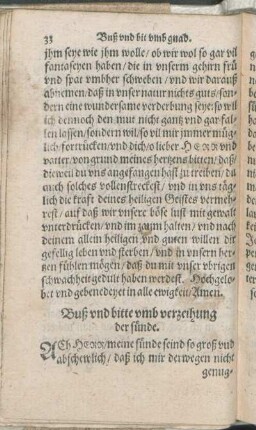 33 Buß vnd bit vmb gnad.
jhm seye wie jhm wolle/ ob wir wol so gar vil
fantaseyen haben/ die in vnserm gehirn frü
vnd spat vmbher schweben/ vnd wir darauß
abnemen/ daß in vnser natur nichts guts/ son-
dern eine wundersame verderbung seye: so wil
ich dennoch den mut nicht gantz vnd gar fal-
len lassen/ sondern wil/ so vil mir jmmer müg-
lich/ fortrücken/ vnd dich/ o lieber HERR vnd
vatter/ von grund meines hertzens bitten/ daß/
die weil du vns angefangen hast zu treiben/ du
auch solches vollenstreckest/ vnd in vns täg-
lich die kraft deines heiligen Geistes vermeh-
rest/ auf daß wir vnsere böse lust mit gewalt
vnterdrücken/ vnd im zaum halten/ vnd nach
deinem allein heiligen vnd guten willen dir
gefellig leben vnd sterben/ vnd in vnsern her-
tzen fühlen mögen/ daß du mit vnser vbrigen
schwachheit gedult haben werdest. Hochgelo-
bet vnd gebenedeyet in alle ewigkeit/ Amen.
Buß vnd bitte vmb verzeihung
der sünde.
ACh HERR/ meine sünde seind so groß vnd
abschewlich/ daß ich mir derwegen nicht
genug-